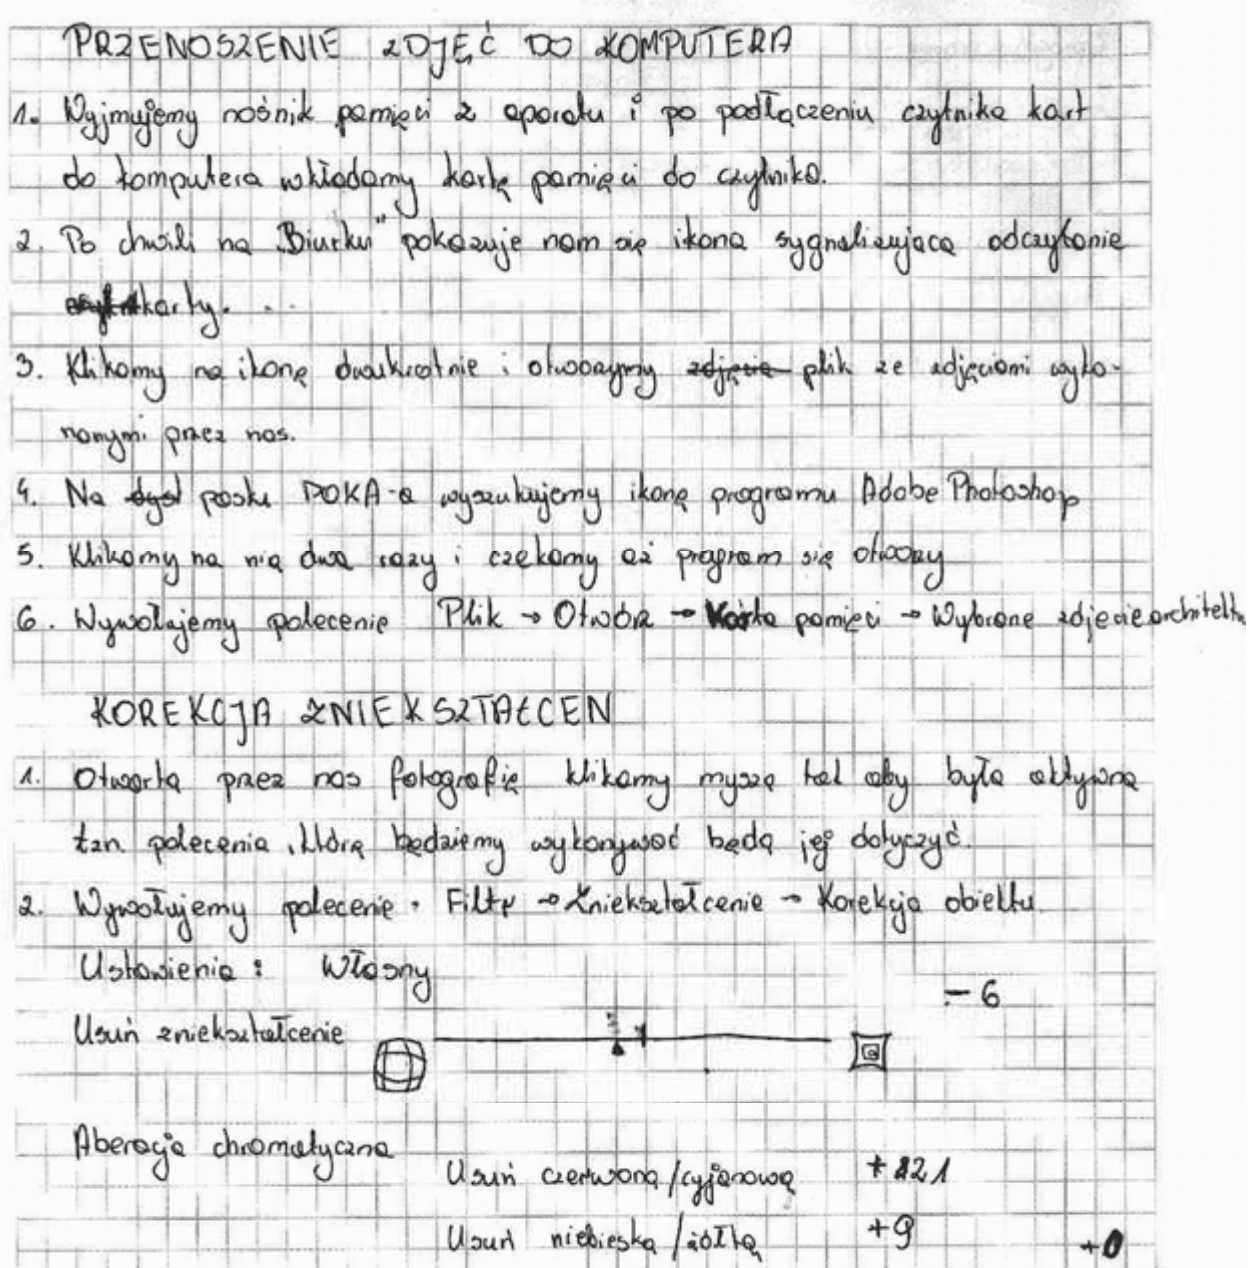 PRZENOSZENIE ZDJĘĆ DO KOMPUTERA
1. Wyjmujemy nośnik pamięci z aparatu i po podłączeniu czytnika kart
do komputera wkładamy kartę pamięci do czytnika.
2. Po chwili na „Biurku" pokazuje nam się ikona sygnalizująca odczytanie
karty.
3. Klikamy na ikonę dwukrotnie i otworzymy zdjęcia plik ze zdjęciami wyko-
nanymi przez nas.
4. Na dysl pasku DOKA-a wyszukujemy ikonę programu Adobe Photoshop
5. Klikamy na nią dwa razy i czekamy aż program się otworzy
6. Wywołujemy polecenie Plik → Otwórz → Karta pamięci → Wybrane zdjęcie architektu
KOREKCJA ZNIEKSZTAŁCEN
1. Otwartą przez nas fotografię klikamy myszą tak aby była aktywna
tzn. polecenia, którą będziemy wykonywać będą jej dotyczyć.
2. Wywołujemy polecenie. Filtr → Zniekształcenie → Korekcja obiektu
Ustawienia: Własny
- 6
Usuń zniekształcenie
Aberacja chromatyczna
Usuń czerwoną/cyjanową
Usuń niebieską/żółtą +9 +0